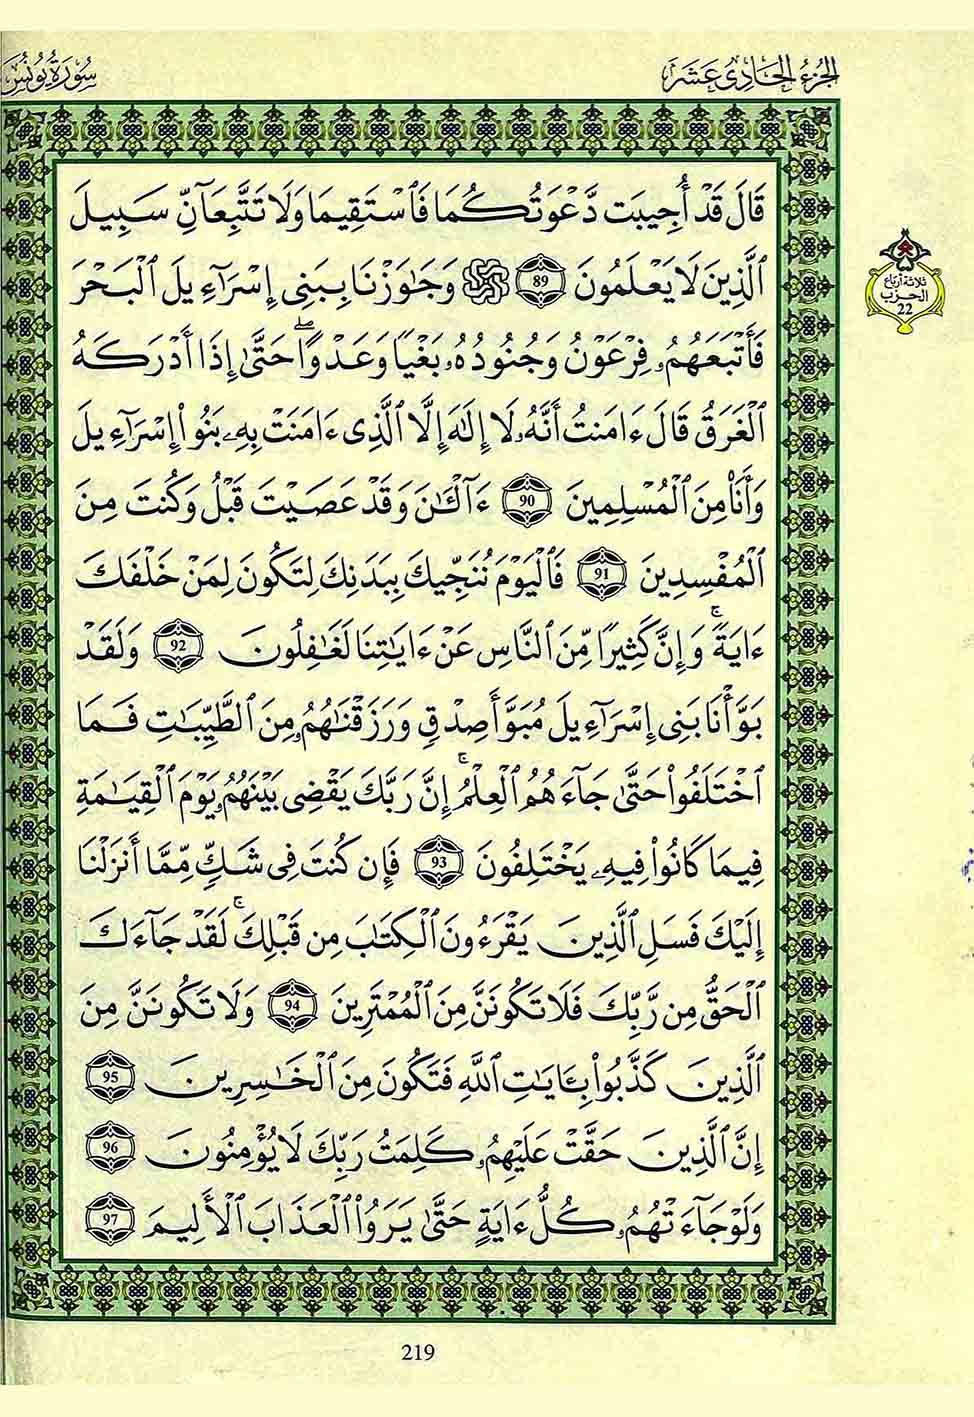 الجُزْءُ الحَادِي عَشَرَ
سُورَةُ يُونُسَ
قَالَ قَدْ أُجِيبَت دَّعْوَتُكُمَا فَٱسْتَقِيمَا وَلَا تَتَّبِعَآنِّ سَبِيلَ
ٱلَّذِينَ لَا يَعْلَمُونَ 89 وَجَٰوَزْنَا بِبَنِى إِسْرَآءِيلَ ٱلْبَحْرَ
فَأَتْبَعَهُمُۥ فِرْعَوْنُ وَجُنُودُهُۥ بَغْيًا وَعَدْوًاۖ حَتَّىٰ إِذَا أَدْرَكَهُ
ٱلْغَرَقُ قَالَ ءَامَنتُ أَنَّهُۥ لَا إِلَٰهَ إِلَّا ٱلَّذِى ءَامَنَتْ بِهِۦ بَنُوا۟ إِسْرَآءِيلَ
وَأَنَا۠ مِنَ ٱلْمُسْلِمِينَ 90 ءَآلْـَٰٔنَ وَقَدْ عَصَيْتَ قَبْلُ وَكُنتَ مِنَ
ٱلْمُفْسِدِينَ 91 فَٱلْيَوْمَ نُنَجِّيكَ بِبَدَنِكَ لِتَكُونَ لِمَنْ خَلْفَكَ
ءَايَةًۚ وَإِنَّ كَثِيرًا مِّنَ ٱلنَّاسِ عَنْ ءَايَٰتِنَا لَغَٰفِلُونَ 92 وَلَقَدْ
بَوَّأْنَا بَنِى إِسْرَآءِيلَ مُبَوَّأَ صِدْقٍ وَرَزَقْنَٰهُمُۥ مِنَ ٱلطَّيِّبَٰتِ فَمَا
ٱخْتَلَفُوا۟ حَتَّىٰ جَآءَهُمُ ٱلْعِلْمُۚ إِنَّ رَبَّكَ يَقْضِى بَيْنَهُمُۥ يَوْمَ ٱلْقِيَٰمَةِ
فِيمَا كَانُوا۟ فِيهِۦ يَخْتَلِفُونَ 93 فَإِن كُنتَ فِى شَكٍّ مِّمَّا أَنزَلْنَا
إِلَيْكَ فَسَلِ ٱلَّذِينَ يَقْرَءُونَ ٱلْكِتَٰبَ مِن قَبْلِكَۚ لَقَدْ جَآءَكَ
ٱلْحَقُّ مِن رَّبِّكَ فَلَا تَكُونَنَّ مِنَ ٱلْمُمْتَرِينَ 94 وَلَا تَكُونَنَّ مِنَ
ٱلَّذِينَ كَذَّبُوا۟ بِـَٔايَٰتِ ٱللَّهِ فَتَكُونَ مِنَ ٱلْخَٰسِرِينَ 95
إِنَّ ٱلَّذِينَ حَقَّتْ عَلَيْهِمُۥ كَلِمَتُ رَبِّكَ لَا يُؤْمِنُونَ 96
وَلَوْ جَآءَتْهُمُۥ كُلُّ ءَايَةٍ حَتَّىٰ يَرَوُا۟ ٱلْعَذَابَ ٱلْأَلِيمَ 97
ثلاثة أرباع
الحزب
22
219